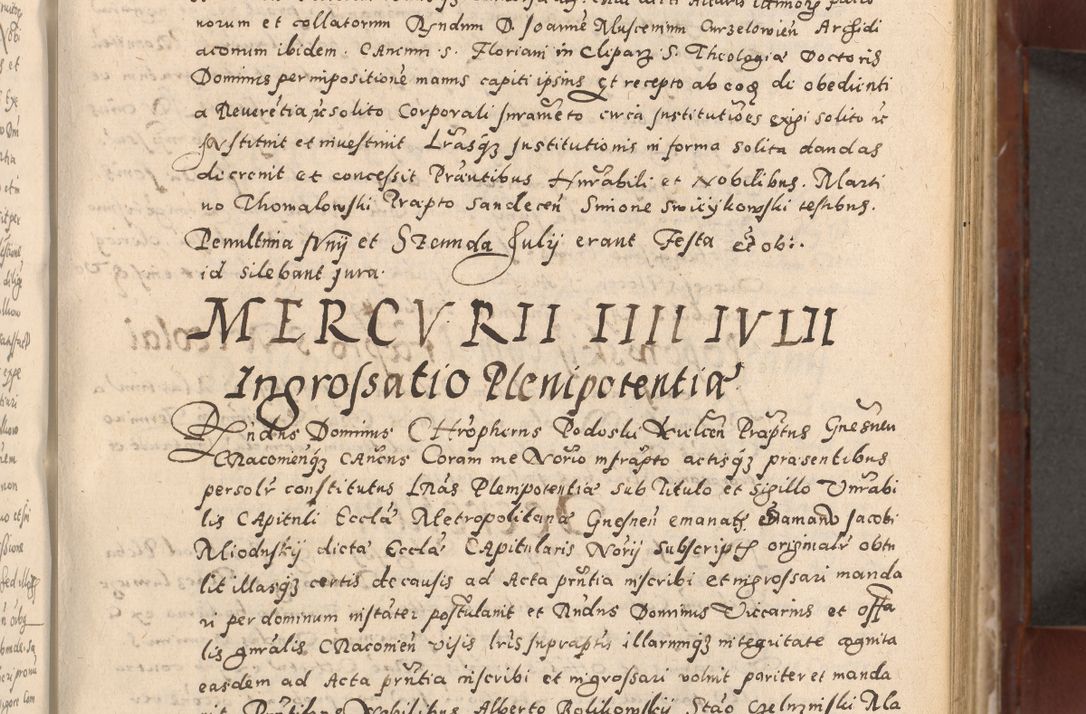 norum et collatorum Rndum D. Joannē Muscenium Curzelovien̄ Archidi
aconum ibidem. Cancum S. Floriani in Clipar3 S. Theologiæ Doctoris
Dominus per impositionē manus capiti ipsius Et recepto ab eoq3 di obedienti
a Reverētia ic solito Corporali juramēto circa Institutiōes exigi solito ic
Instituit et investivit Lrāsq3 Institutionis in forma solita dandas
decrevit et concessit Præntibus Hnrabili et Nobilibus. Marti
no Thomalowski Præpto Sandecen̄ Simone Swiczykowski testibus.
Penultima Junij et Secunda Julij erant Festa et ob.
id silebant jura.
MERCVRII IIII IVLII
Ingrossatio Plenipotentiæ
Rndus Dominus Chrōpherus Podoski Kielcen̄ Præptus Gnesnen̄
Cracoviēnq3 Cancus Coram me Notrio infrapto actisq3 præsentibus
persolr constitutus Lrās Plenipotentiæ sub titulo et sigillo Vnrabi
lis Capituli Ecclæ Metropolitanæ Gnesnen̄ emanats Jacobi
Miodusky dictæ Ecclæ Capitularis Notrij subscriptas originalr obtu
lit illasq3 certis de causis ad Acta prntia inscribi et ingrossari manda
ri per dominum instāter postulavit et Rndus Dominus Viccarius et offa
lis gnralis Cracovien̄ visis lris suprapts illarumq3 integritate agnita
easdem ad Acta prntia inscribi et ingrossari voluit pariter et manda
vit Præntibus Nobilibus Alberto Bolikowski Stao Czeluzinski Ala